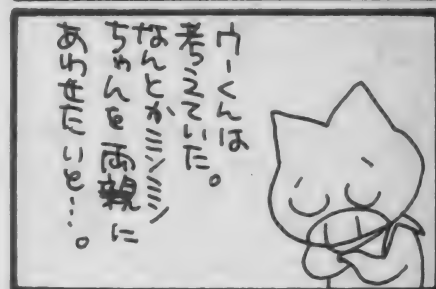 ウーくんは
考えていた。
なんとかミンミン
ちゃんを両親に
あわせたいと…。